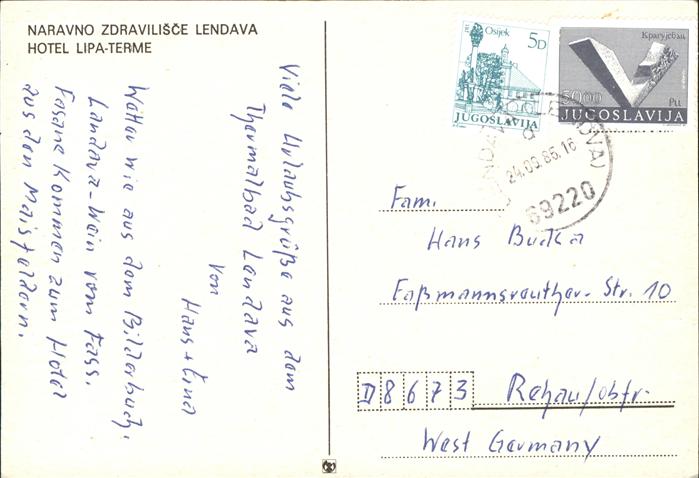 NARAVNO ZDRAVILIŠČE LENDAVA
HOTEL LIPA-TERME
Viele Urlaubsgrüße aus dem
Thermalbad Lendava
von
Hans + Erna
Wetter wie aus dem Bilderbuch,
Lendava-Wein vom Fass.
Fasane kommen zum Hotel
aus den Maisfeldern.
Osijek
5D
JUGOSLAVIJA
Крагујевац
50,00
JUGOSLAVIJA
24.09.85.16
69220
Fam.
Hans Budka
Faßmannsreuther-Str. 10
D8673 Rehau/obfr.
West Germany